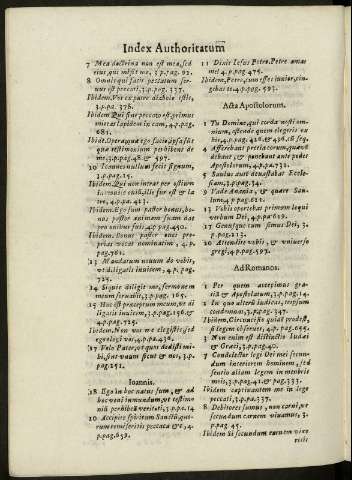 Index Authoritatum
7 Mea doctrina non est mea, sed
eius, qui misit me, 3.p.pag. 92.
8 Omnis qui facit peccatum ser-
uus est peccati, 3.p.pag. 337.
Ibidem. Vos ex patre diabolo estis,
3.p.pa. 306.
Ibidem Qui sine peccato est, primus
mittat lapidem in eam, 4.p.pag.
681.
Ibidem. Opera quae ego facio ipsa sunt
quae testimonium perhibent de
me, 3.p.pag. 48. & 597.
10 Ioannes nullum fecit signum,
3.p.pag. 15.
Ibidem. Qui non intrat per ostium
in ouile ouium, ille fur est & la
tro, 4.p.pa. 423.
Ibidem. Ego sum pastor bonus, bo-
nus pastor animam suam dat
pro ouibus suis, 4.p.pag. 450.
Ibidem. Bonus pastor oues pro-
prias vocat nominatim, 4. p.
pag. 761.
13 Mandatum nouum do vobis,
vt diligatis inuicem, 4.p. pag.
725.
14 Si quis diligit me, sermonem
meum seruabit, 3.p.pag. 165.
15 Hoc est praeceptum meum, vt di
ligatis inuicem, 3.p.pag. 256. &
4.p.pag. 725.
Ibidem. Non vos me elegistis, sed
ego elegi vos, 4.p.pa. 436.
17 Volo Pater, vt quos dedisti mi-
hi, sint vnum sicut & nos, 3.p.
pag. 251.
Ioannis.
18 Ego in hoc natus sum, & ad
hoc veni in mundum, vt testimo
niũ perhibeã veritati, 3.p.pa. 14
20 Accipite Spiritum Sanctũ, quo-
rum remiseritis peccata & c, 4.
p.pag. 658.
21 Dixit Iesus Petro, Petre amas
me? 4.p.pag. 475.
Ibidem, Petre, cum esses iunior, cin-
gebas te 4.p.pag. 593.
Acta Apostolorum.
1 Tu Domine, qui corda nosti om-
nium, ostende quem elegeris ex
his, 4.p.pag. 426. & 436. & seq.
4 Afferebant pretia eorum, quae vẽ
debant, & ponebant ante pedes
Apostolorum, 4.p.pa. 732.
5 Saulus autẽ deuastabat Eccle-
siam, 3.p.pag. 34.
9 Vade Anania, & quaere Sau-
lum, 4.p.pag. 621.
13 Vobis oportebat primum loqui
verbum Dei, 4.p.pa. 639.
17 Genus quoque sumus Dei, 3.p.
pag. 213.
20 Attendite vobis, & vniuerso
gregi, 4.p.pag. 597.
Ad Romanos.
1 Per quem accepimus gra-
tiã & Apostolatum, 3.p.pag. 14.
2 In quo alterũ iudicas, teipsum
condemnas, 3.p.pag. 347.
Ibidem, Circuncisio quidẽ prodest,
si legem obserues, 4.p.pag. 655.
3 Non enim est distinctio Iudaei
& Graeci, 3.p.pag. 40.
7 Condelector legi Dei mei secun-
dum interiorem hominem, sed
sentio aliam legem in membris
meis, 3.p.pag. 41. & pag. 333.
Ibidem captiuantem me in lege
peccati, 3.p.pa. 337.
8 Debitores sumus, non carni, vt
secundum carnem viuamus, 3.
p.pag. 45.
Ibidem Si secundum carnem vixe
ritis